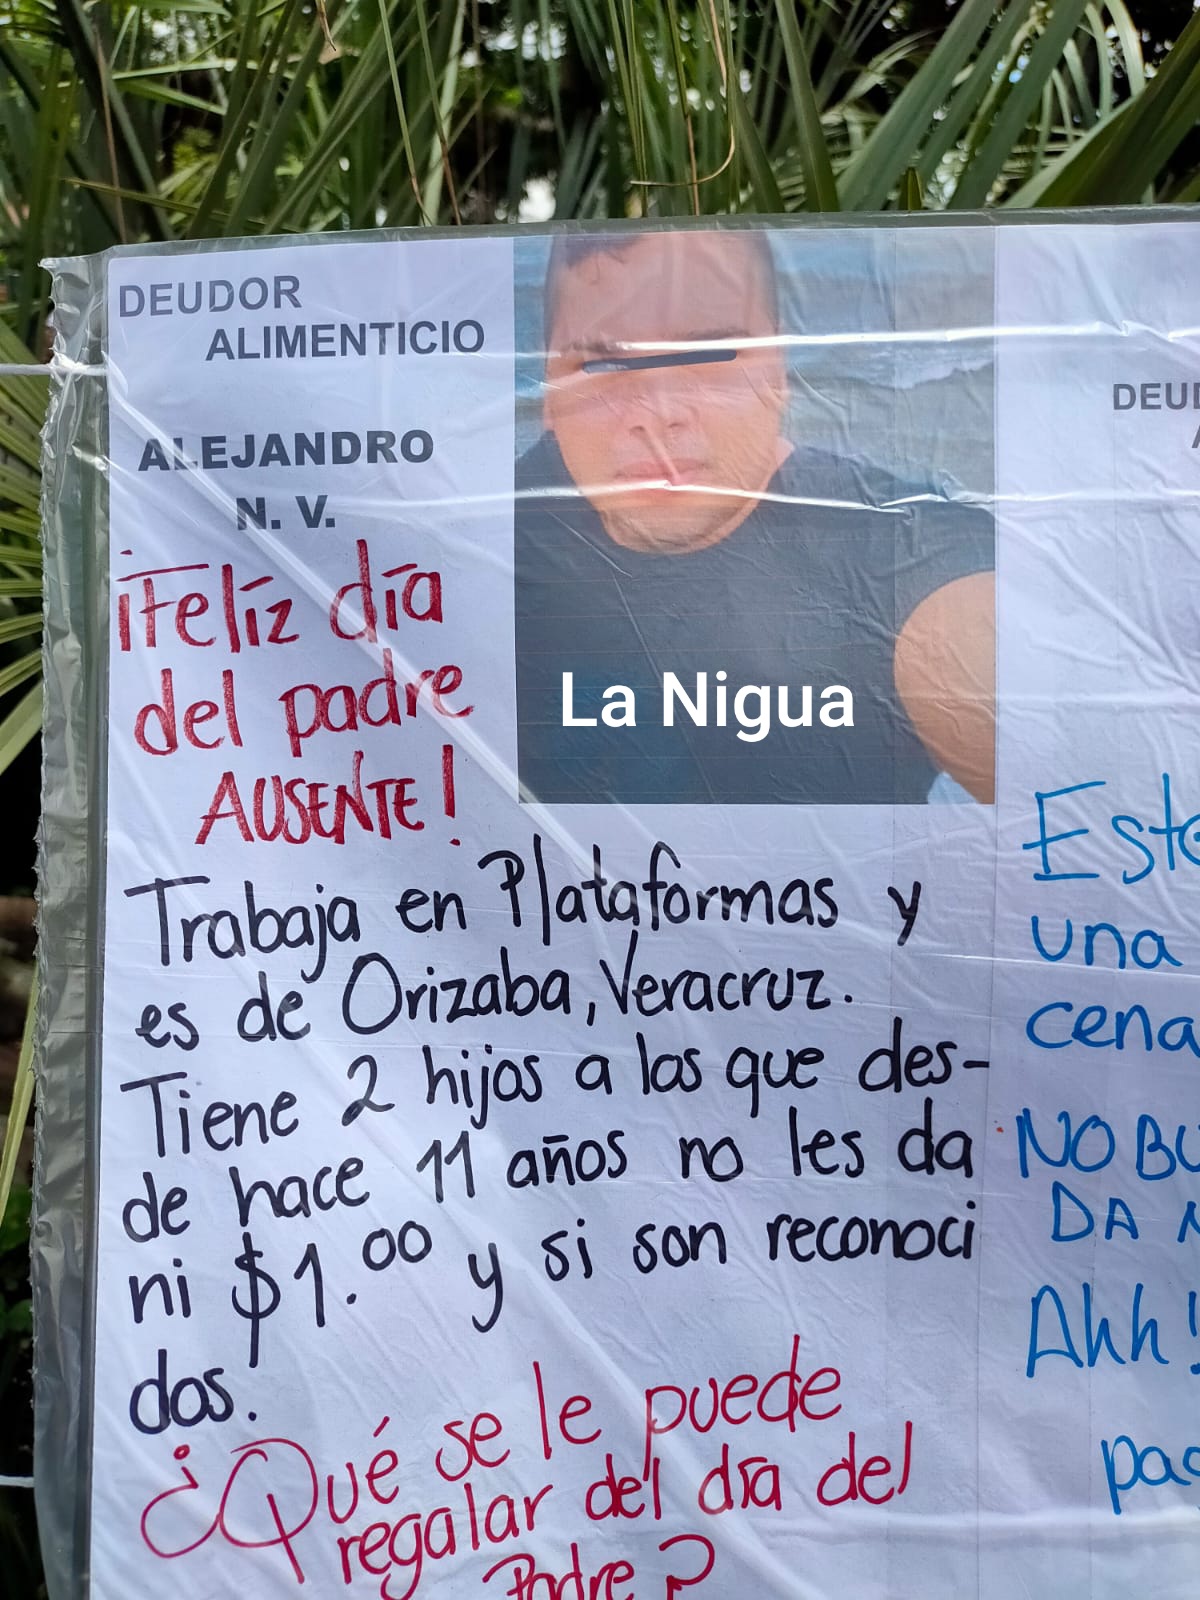 DEUDOR
ALIMENTICIO
ALEJANDRO
N. V.
¡Felíz día
del padre
AUSENTE!
La Nigua
Trabaja en Plataformas y
es de Orizaba, Veracruz.
Tiene 2 hijos a los que des-
de hace 11 años no les da
ni $1.00 y si son reconoci
dos.
¿Qué se le puede
regalar del día del
Padre?
DEUD
A
Este
una
cena
NO BU
DA
Ahh!
pas